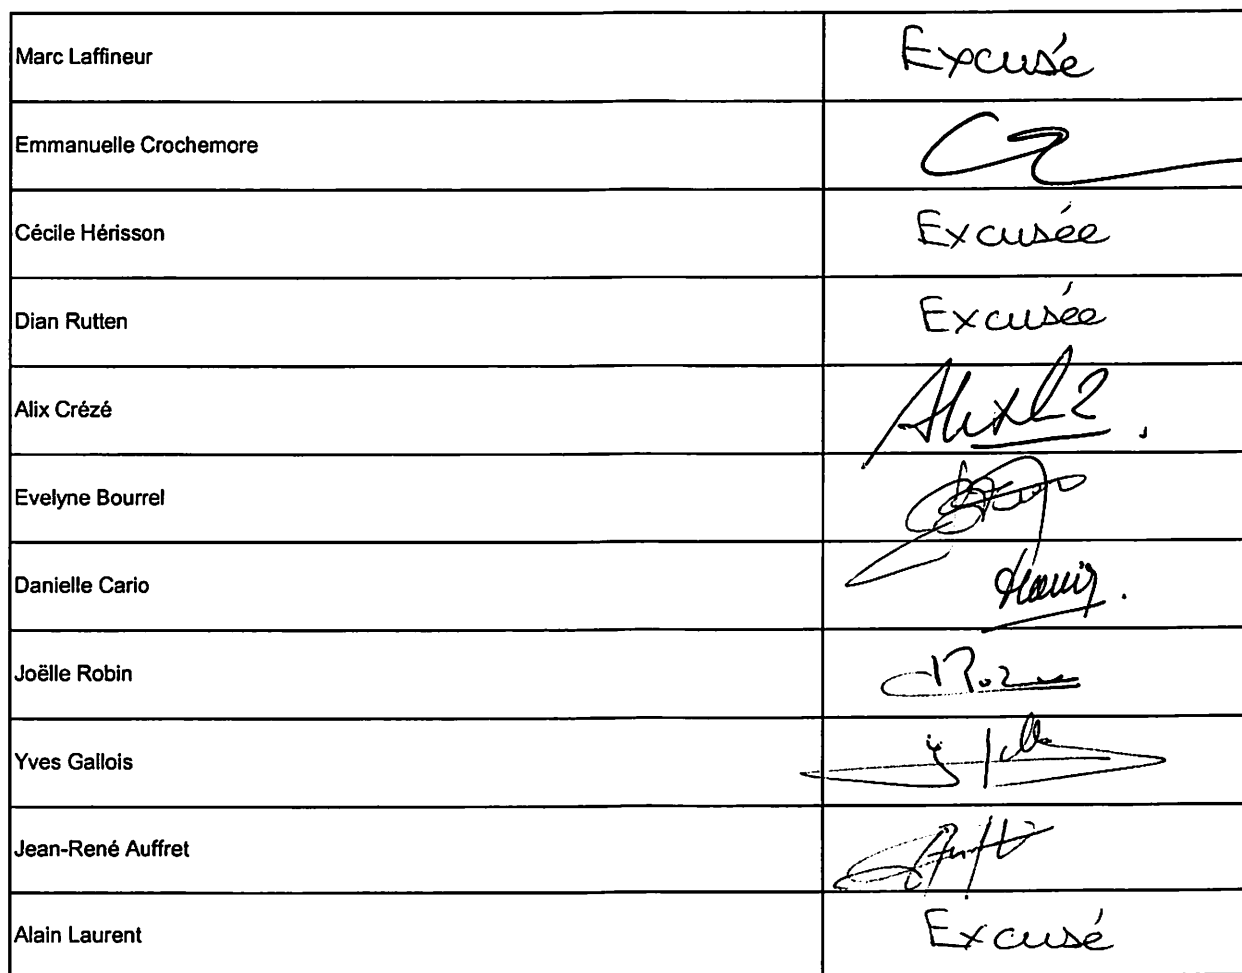 Marc Laffineur Excusé
Emmanuelle Crochemore
Cécile Hérisson Excusée
Dian Rutten Excusée
Alix Crézé
Evelyne Bourrel
Danielle Cario
Joëlle Robin
Yves Gallois
Jean-René Auffret
Alain Laurent Excusé